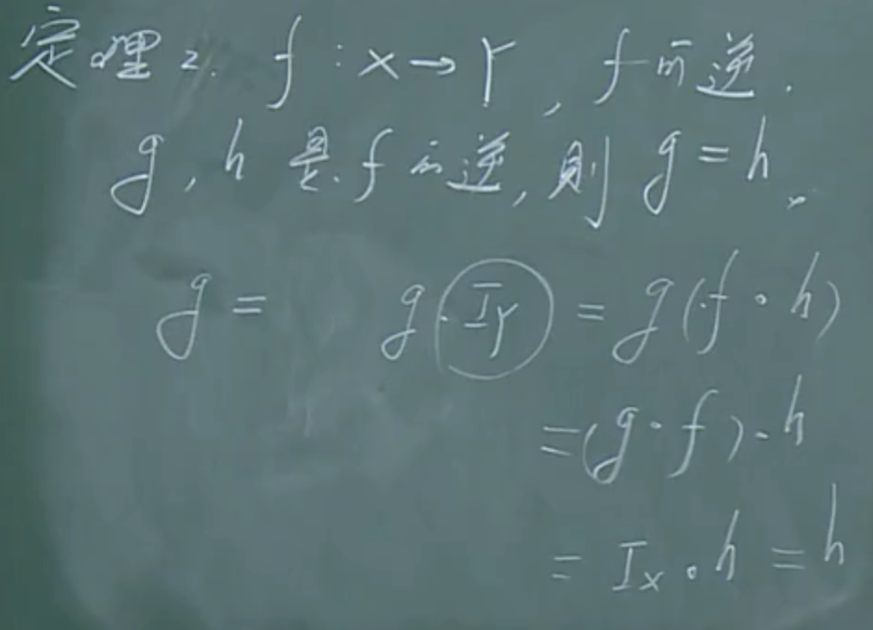 定理2. f : X → Y, f可逆.
g, h 是 f 的逆, 则 g = h.
g = g · I_Y = g(f ∘ h)
= (g ∘ f) ∘ h
= I_X ∘ h = h